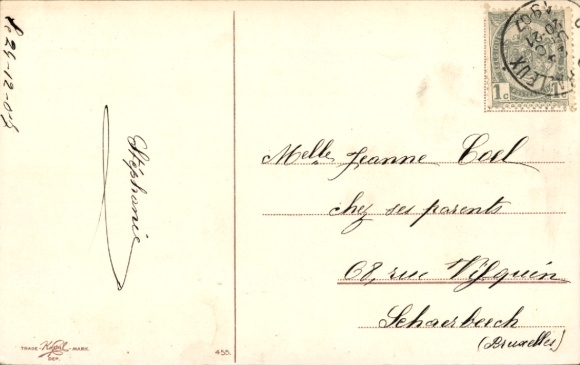 Le 24-12-07
Stéphanie
Melle Jeanne Coel
chez ses parents
68, rue Vifquin
Schaerbeech
(Bruxelles)
1c
1c
1907
TRADE Kopal MARK.
DEP.
455.